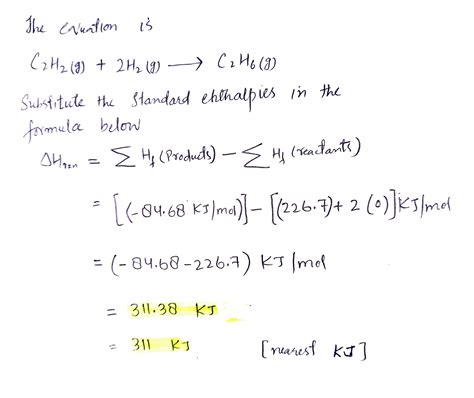 The Equation is
C2H2(g) + 2H2(g) ⟶ C2H6(g)
Substitute the Standard enthalpies in the
formula below
ΔHrxn = ∑ Hf (Products) − ∑ Hf (reactants)
= [(-84.68 KJ/mol)] − [(226.7) + 2 (0)] KJ/mol
= (-84.68 - 226.7) KJ/mol
= 311.38 KJ
= 311 KJ [nearest KJ]